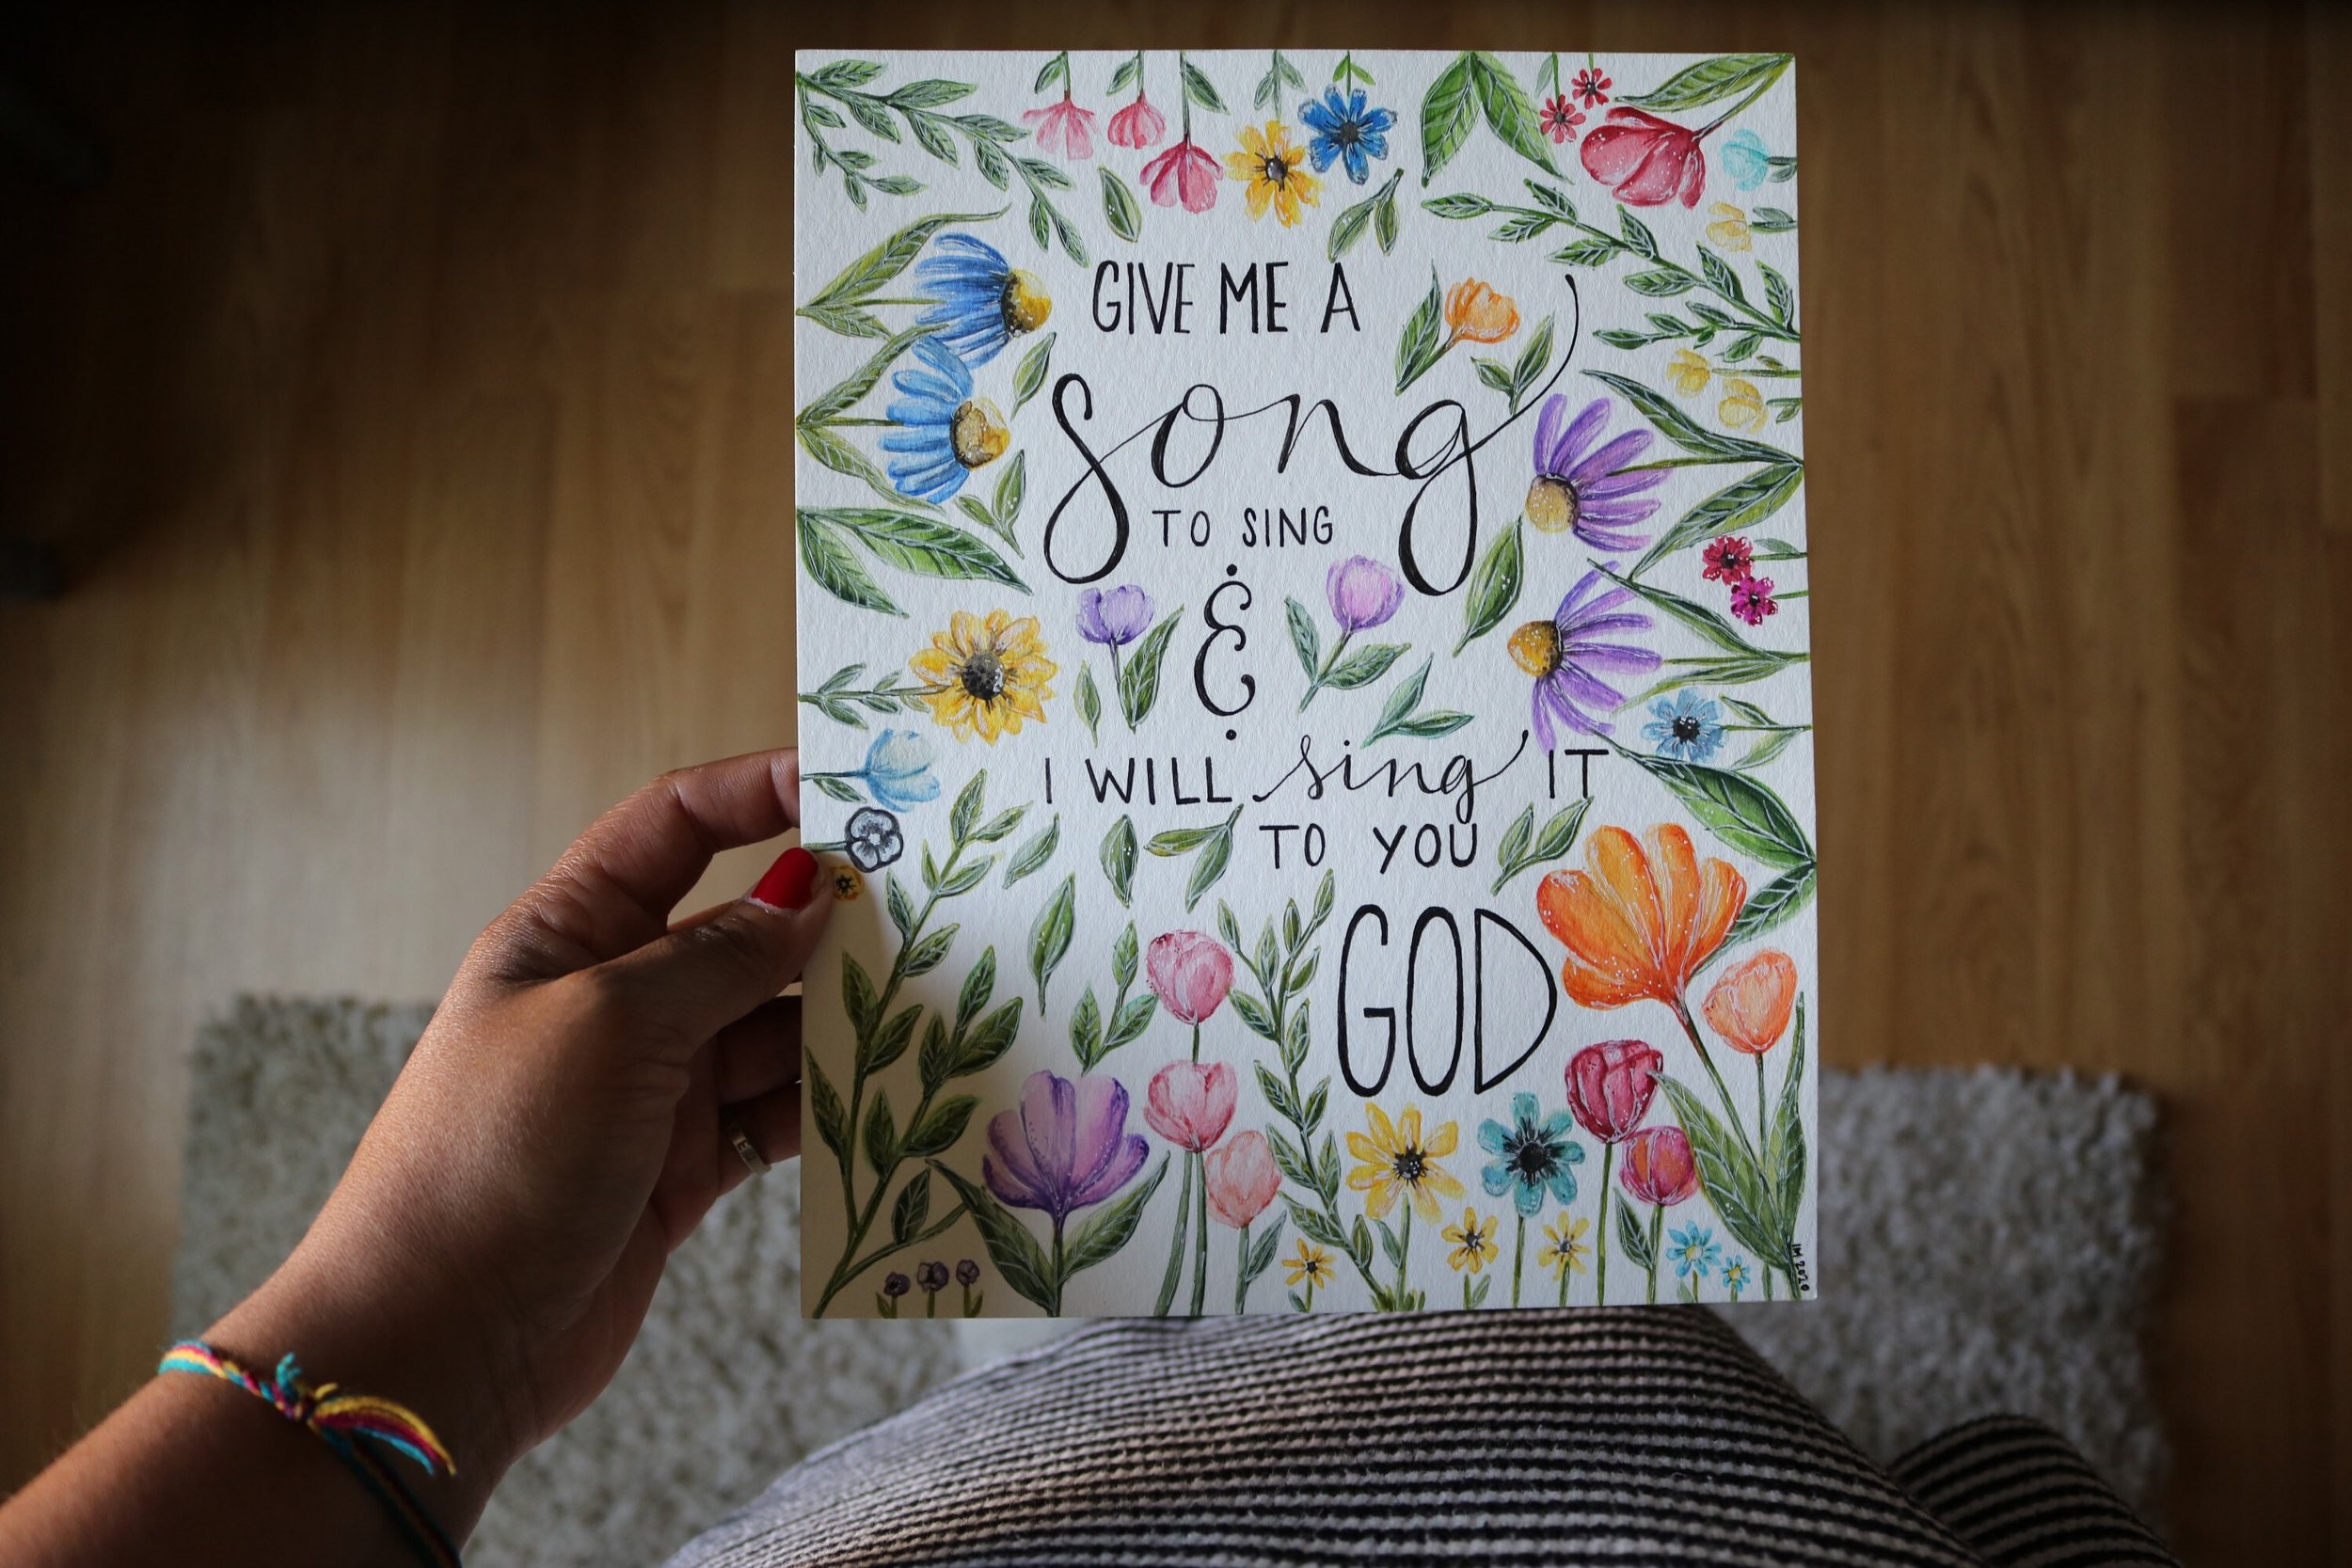 GIVE ME A
Song
TO SING
&
I WILL sing IT
TO YOU
GOD
IM 2020